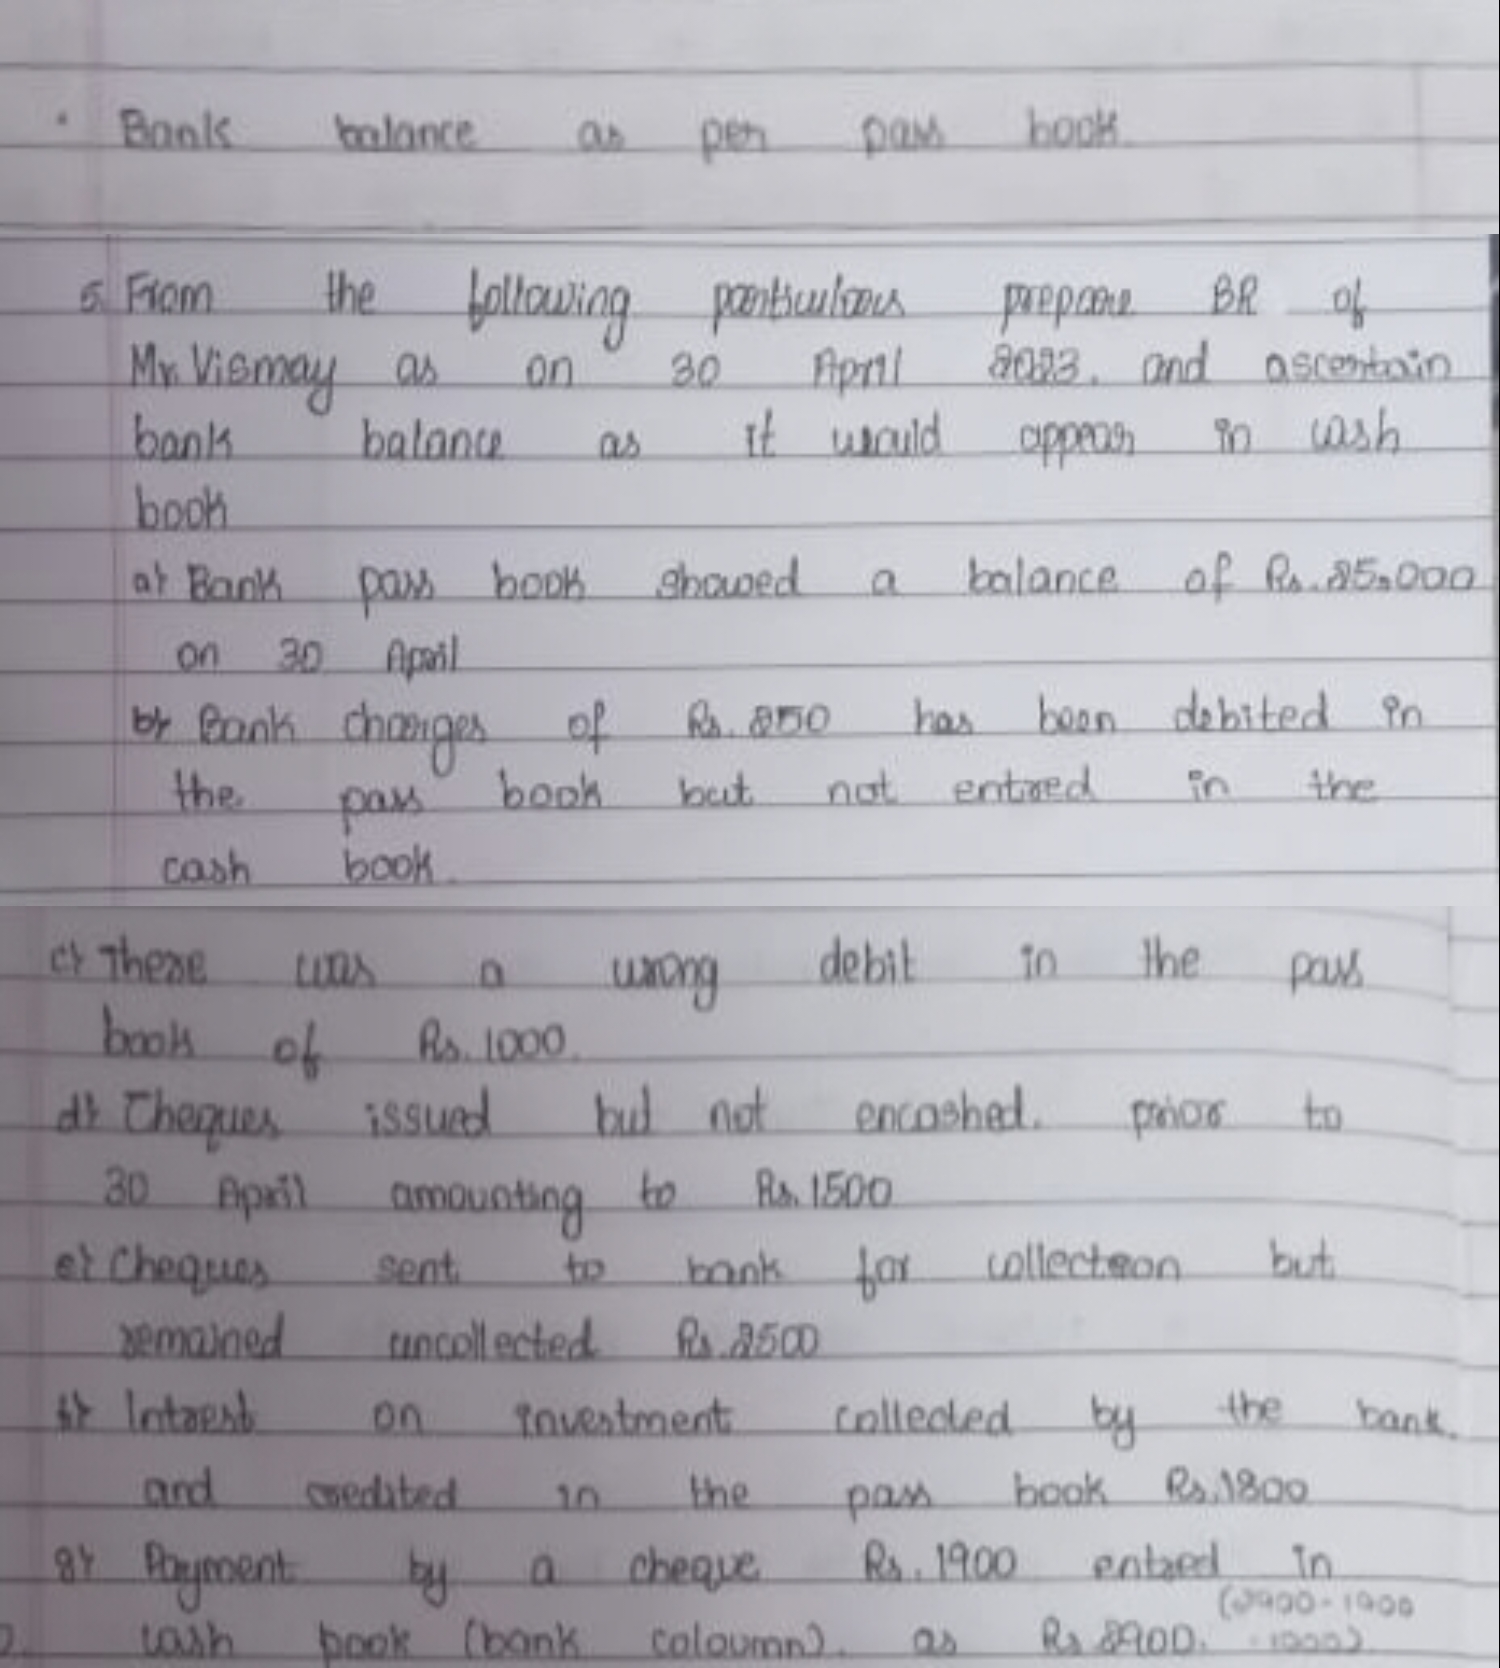 • Bank balance as per pass book
5. From the following particulars prepare BR of
Mr. Vismay as on 30 April 2023. and ascertain
bank balance as it would appear in cash
book
a) Bank pass book showed a balance of Rs. 25,000
on 30 April
b) Bank charges of Rs. 250 has been debited in
the pass book but not entred in the
cash book.
c) There was a wrong debit in the pass
book of Rs. 1000.
d) Cheques issued but not encashed. prior to
30 April amounting to Rs. 1500
e) Cheques sent to bank for collecteon but
remained uncollected Rs. 2500
f) Intrest on investment collected by the bank.
and credited in the pass book Rs. 1800
g) Payment by a cheque Rs. 1900 entred in
(2900-1900
cash book (bank coloumn). as Rs 2900. -1000)